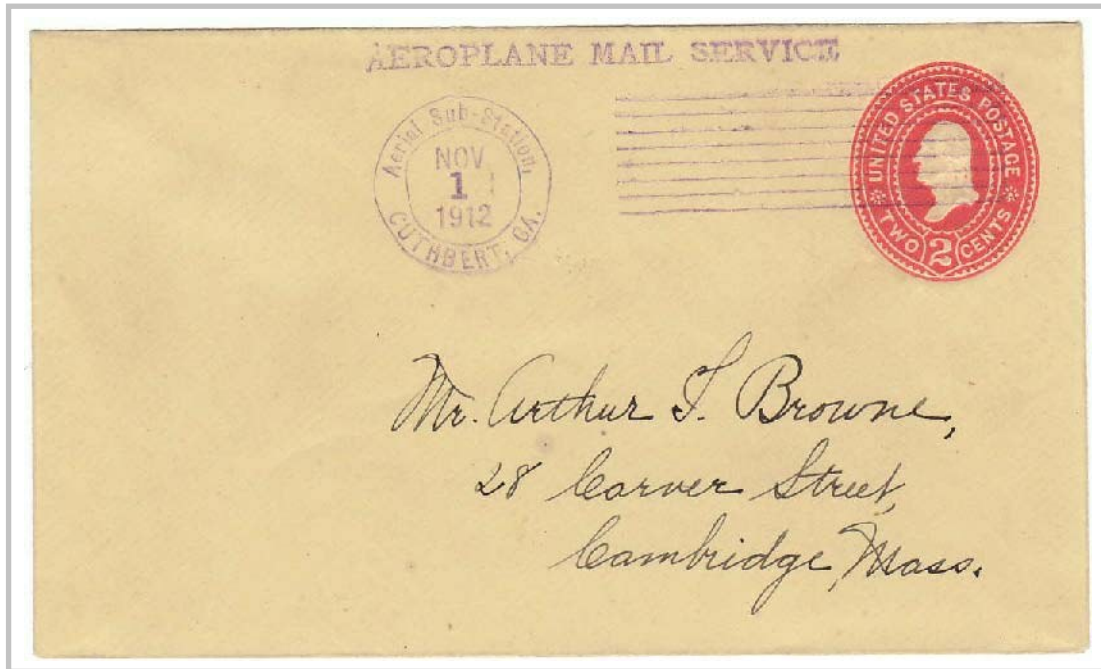 AEROPLANE MAIL SERVICE
Aerial Sub-Station,
NOV
1
1912
CUTHBERT, GA.
UNITED STATES POSTAGE
TWO 2 CENTS
Mr. Arthur F. Browne,
28 Carver Street,
Cambridge, Mass.